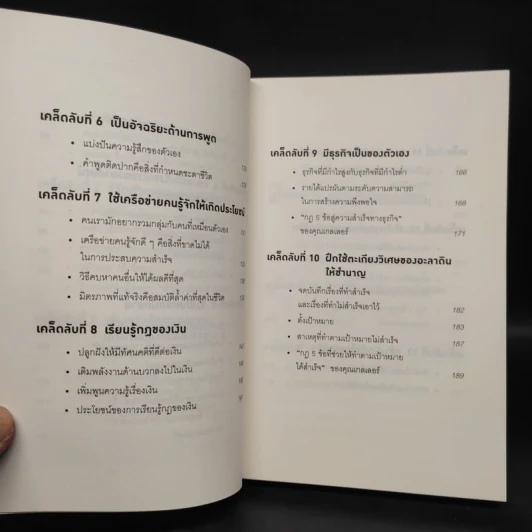 เคล็ดลับที่ 6 เป็นอัจฉริยะด้านการพูด
• แบ่งปันความรู้สึกของตัวเอง
• คำพูดติดปากคือสิ่งที่กำหนดชะตาชีวิต
เคล็ดลับที่ 7 ใช้เครือข่ายคนรู้จักให้เกิดประโยชน์
• คนเรามักอยากรวมกลุ่มกับคนที่เหมือนตัวเอง
• เครือข่ายคนรู้จักดี ๆ คือสิ่งที่ขาดไม่ได้
ในการประสบความสำเร็จ
• วิธีคบหาคนอื่นให้ได้ผลดีที่สุด
• มิตรภาพที่แท้จริงคือสมบัติล้ำค่าที่สุดในชีวิต
เคล็ดลับที่ 8 เรียนรู้กฎของเงิน
• ปลูกฝังให้มีทัศนคติที่ดีต่อเงิน
• เติมพลังงานด้านบวกลงไปในเงิน
• เพิ่มพูนความรู้เรื่องเงิน
• ประโยชน์ของการเรียนรู้กฎของเงิน
เคล็ดลับที่ 9 มีธุรกิจเป็นของตัวเอง
• ธุรกิจที่มีกำไรสูงกับธุรกิจที่มีกำไรต่ำ 166
• รายได้แปรผันตามระดับความสามารถ
ในการสร้างความพึงพอใจ 168
• "กฎ 5 ข้อสู่ความสำเร็จทางธุรกิจ"
ของคุณเกลเลอร์ 171
เคล็ดลับที่ 10 ฝึกใช้ตะเกียงวิเศษของอะลาดิน
ให้ชำนาญ
• จดบันทึกเรื่องที่ทำสำเร็จ
และเรื่องที่ทำไม่สำเร็จเอาไว้ 182
• ตั้งเป้าหมาย 183
• สาเหตุที่ทำตามเป้าหมายไม่สำเร็จ 187
• "กฎ 5 ข้อที่ช่วยให้ทำตามเป้าหมาย
ได้สำเร็จ" ของคุณเกลเลอร์ 189